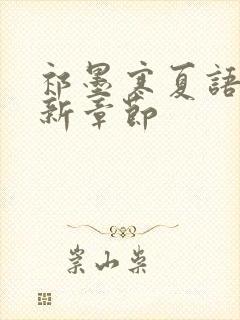 祁墨寒夏語
新章節
崇山柴